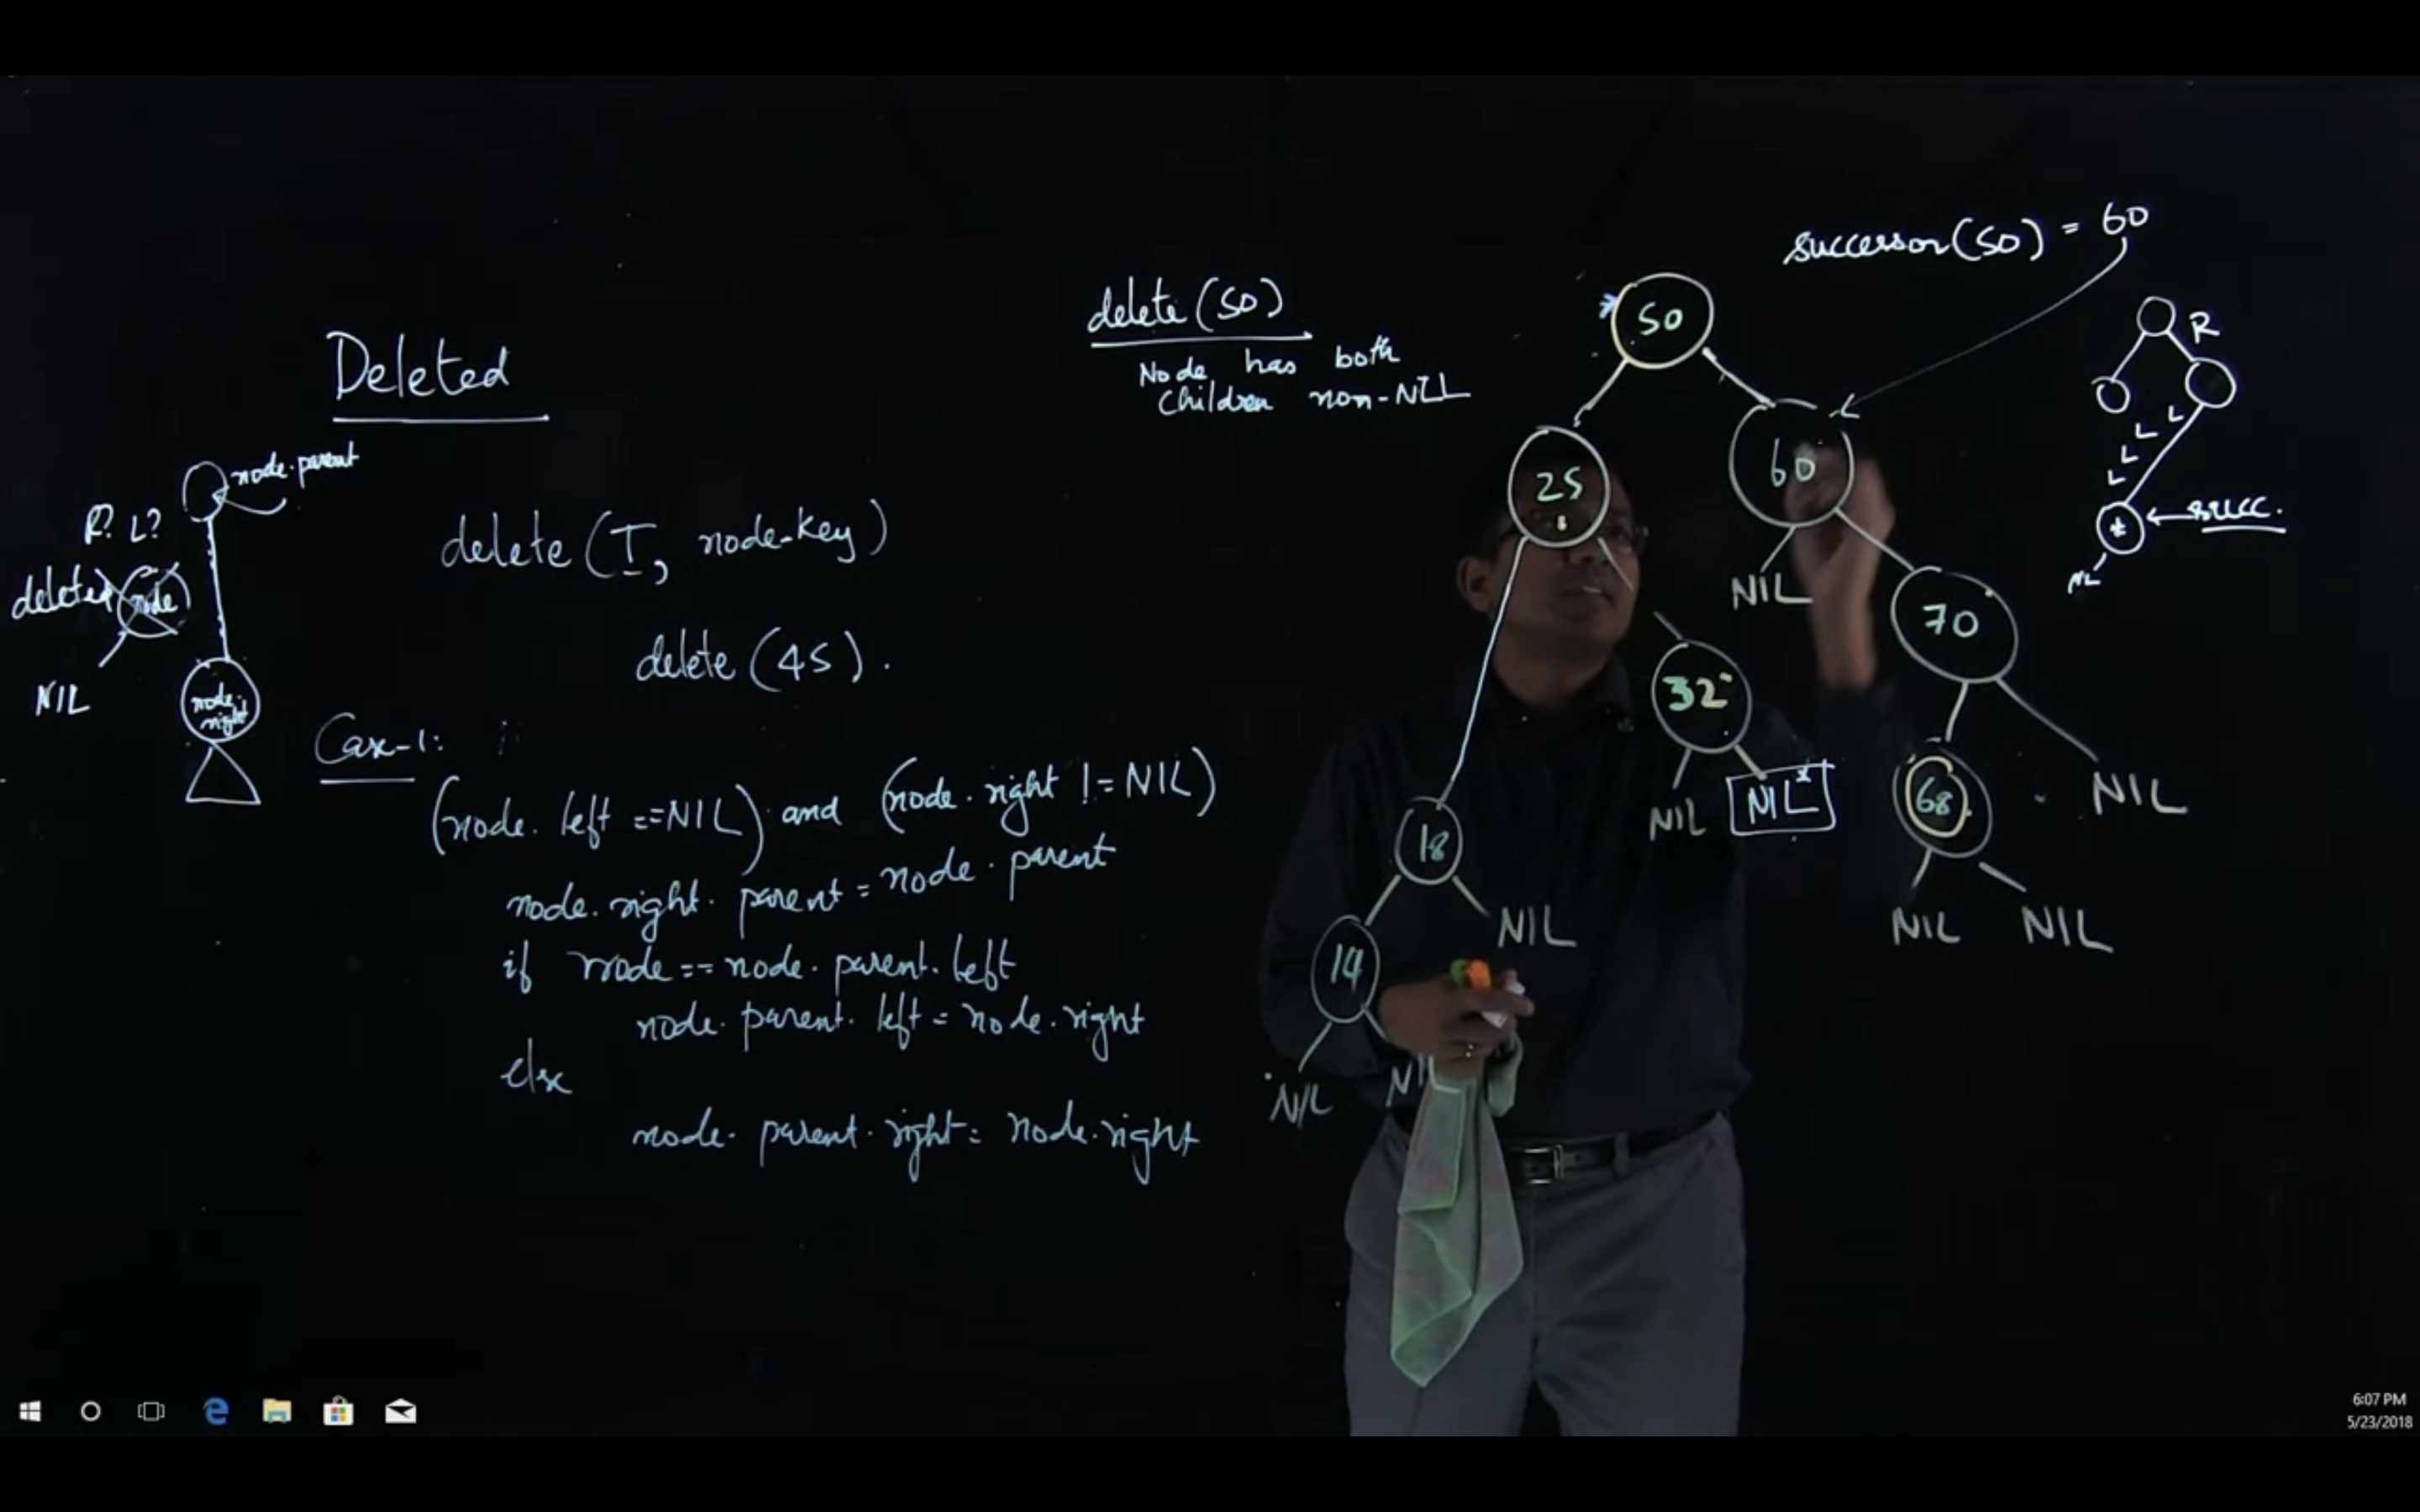 Deleted
node.parent
R? L?
deleted node
NIL
node.
right
delete (T, node-key)
delete (45).
Case-1:
(node. left ==NIL) and (node. right != NIL)
node. right. parent = node. parent
if node == node. parent. left
node. parent. left = node. right
else
node. parent. right = node. right
delete (50)
Node has both
Children non-NIL
successor(50) = 60
50
25
60
NIL
70
32
NIL
NIL*
68
NIL
NIL
NIL
18
NIL
14
NIL
NIL
R
L
L
L
L
*
succ.
NIL
6:07 PM
5/23/2018